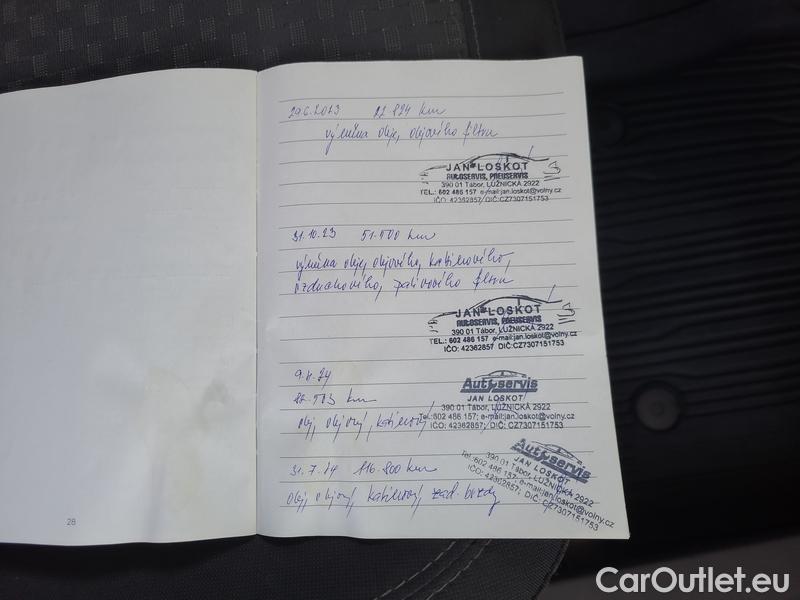 29.6.2023 22 824 km
výměna oleje, olejového filtru
JAN LOSKOT
AUTOSERVIS, PNEUSERVIS
390 01 Tábor, LUŽNICKÁ 2922
TEL.: 602 486 157 e-mail:jan.loskot@volny.cz
IČO: 42362857 DIČ:CZ7307151753
31.10.23 51.500 km
výměna oleje, olejového, kabinového,
vzduchového, palivového filtru
JAN LOSKOT
AUTOSERVIS, PNEUSERVIS
390 01 Tábor, LUŽNICKÁ 2922
TEL.: 602 486 157 e-mail:jan.loskot@volny.cz
IČO: 42362857 DIČ:CZ7307151753
km
olej, olejový, kabinový
Autoservis
JAN LOSKOT
390 01 Tábor, LUŽNICKÁ 2922
Tel.:602 486 157; e-mail:jan.loskot@volny.cz
IČO: 42362857; DIČ:CZ7307151753
31.7.24 116.800 km
olej, olejový, kabinový, zad. brzdy
Autoservis
JAN LOSKOT
390 01 Tábor, LUŽNICKÁ 2922
Tel.:602 486 157; e-mail:jan.loskot@volny.cz
IČO: 42362857; DIČ:CZ7307151753
28
CarOutlet.eu